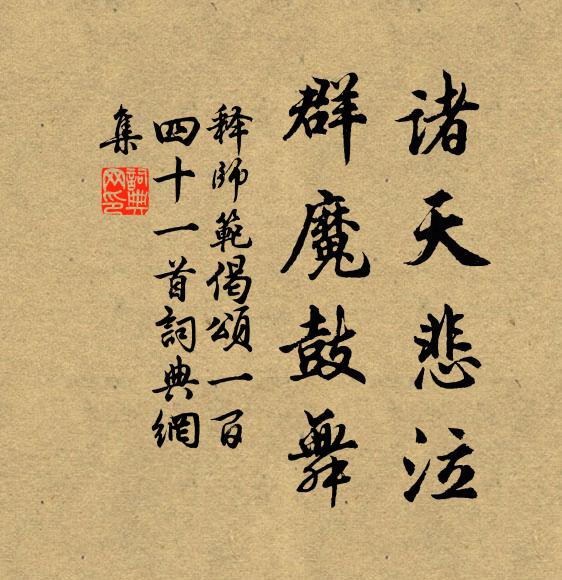 诸天悲泣
群魔鼓舞
释师範偈颂一百
四十一首詞典網
集
詞典
网印